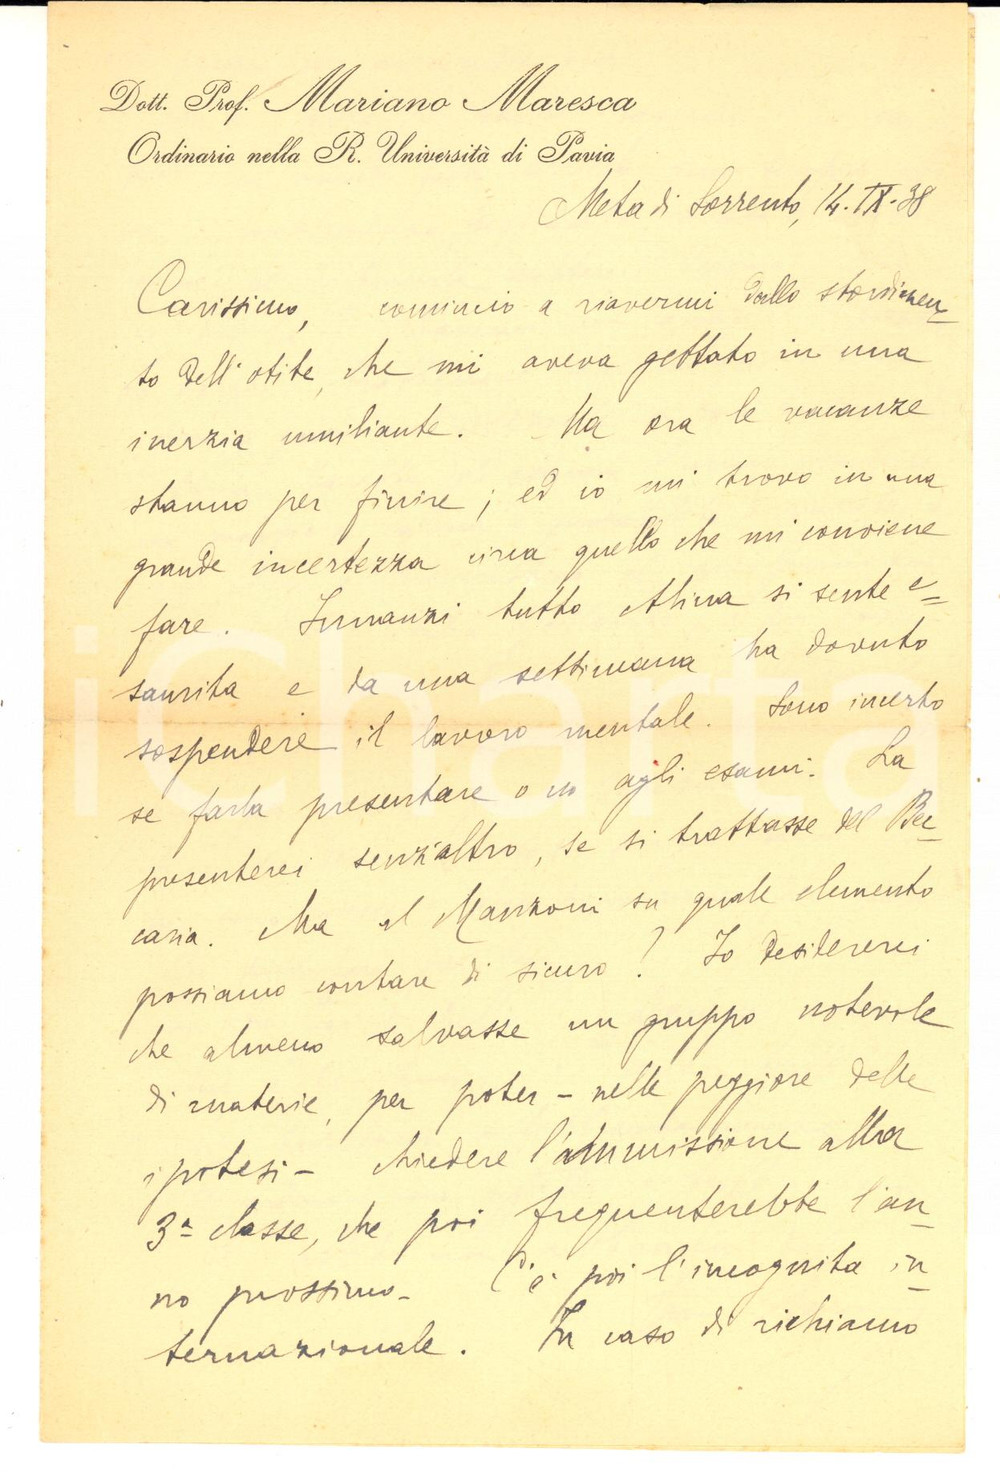 Dott. Prof. Mariano Maresca
Ordinario nella R. Università di Pavia
Meta di Sorrento, 14-IX-38
Carissimo, comincio a riavermi dallo stordimen-
to dell'otite, che mi aveva gettato in una
inerzia umiliante. Ma ora le vacanze
stanno per finire; ed io mi trovo in una
grande incertezza circa quello che mi conviene
fare. Innanzi tutto Alina si sente e=
saurita e da una settimana ha dovuto
sospendere il lavoro mentale. Sono incerto
se farla presentare o no agli esami. La
presenterei senz'altro, se si trattasse del Bec-
caria. Ma al Manzoni su quale elemento
possiamo contare di sicuro? Io desidererei
che almeno salvasse un gruppo notevole
di materie, per poter - nella peggiore delle
ipotesi - chiedere l'ammissione alla
3ª classe, che poi frequenterebbe l'an-
no prossimo - C'è poi l'incognita in-
ternazionale. In caso di richiamo
iCharta